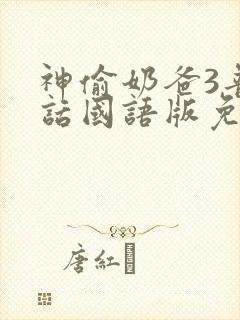 神偷奶爸3
話國語版免
唐紅